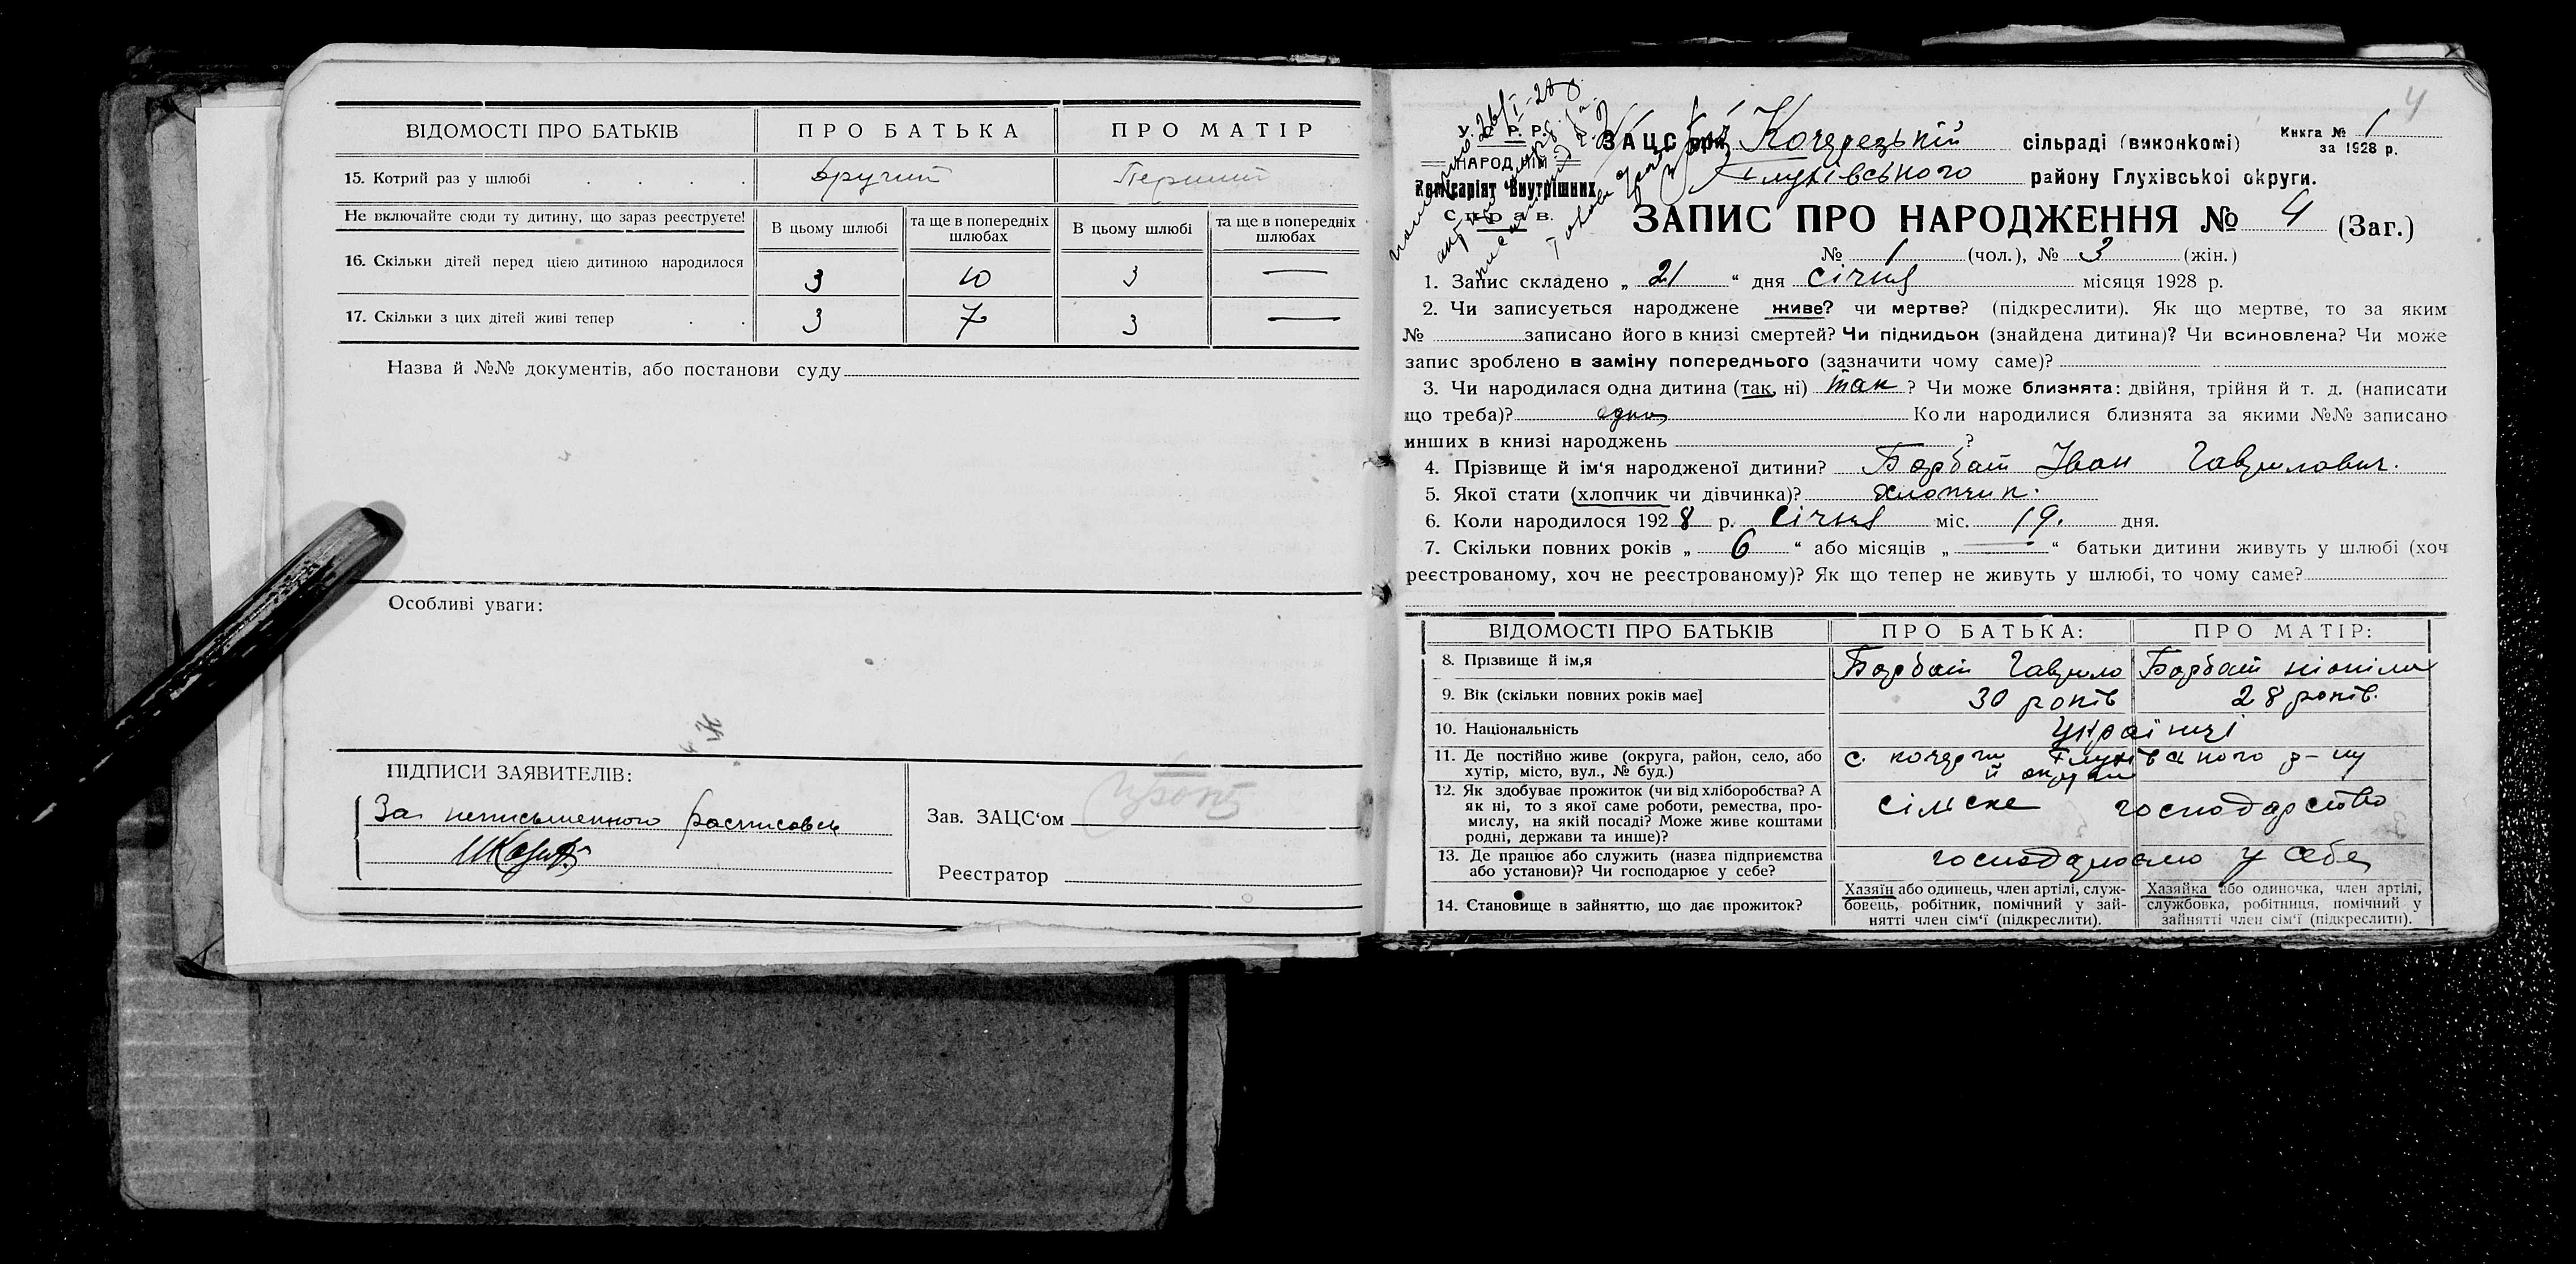 ВІДОМОСТІ ПРО БАТЬКІВ ПРО БАТЬКА ПРО МАТІР
15. Котрий раз у шлюбі . . . . другий Перший
Не включайте сюди ту дитину, що зараз реєструєте!
В цьому шлюбі та ще в попередніх шлюбах В цьому шлюбі та ще в попередніх шлюбах
16. Скільки дітей перед цією дитиною народилося 3 10 3 —
17. Скільки з цих дітей живі тепер . . 3 7 3 —
Назва й №№ документів, або постанови суду
Особливі уваги:
ПІДПИСИ ЗАЯВИТЕЛІВ:
За неписьменного
Зав. ЗАЦС‘ом
Реєстратор
4
У. С. Р. Р.
НАРОДНІЙ
Комісаріят Внутрішних
Справ.
ЗАЦС при Кочерезькій сільраді (виконкомі)
Книга № 1
за 1928 р.
Глухівського району Глухівської округи.
ЗАПИС ПРО НАРОДЖЕННЯ № 4 (Заг.)
№ 1 (чол.), № 3 (жін.)
1. Запис складено „ 21 “ дня січня місяця 1928 р.
2. Чи записується народжене живе? чи мертве? (підкреслити). Як що мертве, то за яким
№ записано його в книзі смертей? Чи підкидьок (знайдена дитина)? Чи всиновлена? Чи може
запис зроблено в заміну попереднього (зазначити чому саме)?
3. Чи народилася одна дитина (так, ні) так ? Чи може близнята: двійня, трійня й т. д. (написати
що треба)? одна Коли народилися близнята за якими №№ записано
инших в книзі народжень ?
4. Прізвище й ім‘я народженої дитини? Борбат Іван Гаврилович.
5. Якої стати (хлопчик чи дівчинка)? хлопчик.
6. Коли народилося 1928 р. січня міс. 19. дня.
7. Скільки повних років „ 6 “ або місяців „ — “ батьки дитини живуть у шлюбі (хоч
реєстрованому, хоч не реєстрованому)? Як що тепер не живуть у шлюбі, то чому саме?
ВІДОМОСТІ ПРО БАТЬКІВ ПРО БАТЬКА: ПРО МАТІР:
8. Прізвище й ім,я Борбат Гаврило Борбат
9. Вік (скільки повних років має] 30 років 28 років.
10. Національність Українці
11. Де постійно живе (округа, район, село, або
хутір, місто, вул., № буд.)
с. кочерги Глухівського р-ну
й округи
12. Як здобуває прожиток (чи від хліборобства? А
як ні, то з якої саме роботи, ремества, про-
мислу, на якій посаді? Може живе коштами
родні, держави та инше)?
сільске господарство
13. Де працює або служить (назва підприємства
або установи)? Чи господарює у себе?
господарюємо у себе
14. Становище в зайняттю, що дає прожиток?
Хазяїн або одинець, член артілі, служ-
бовець, робітник, помічний у зай-
нятті член сім‘ї (підкреслити).
Хазяйка або одиночка, член артілі,
службовка, робітниця, помічний у
зайнятті член сім‘ї (підкреслити).